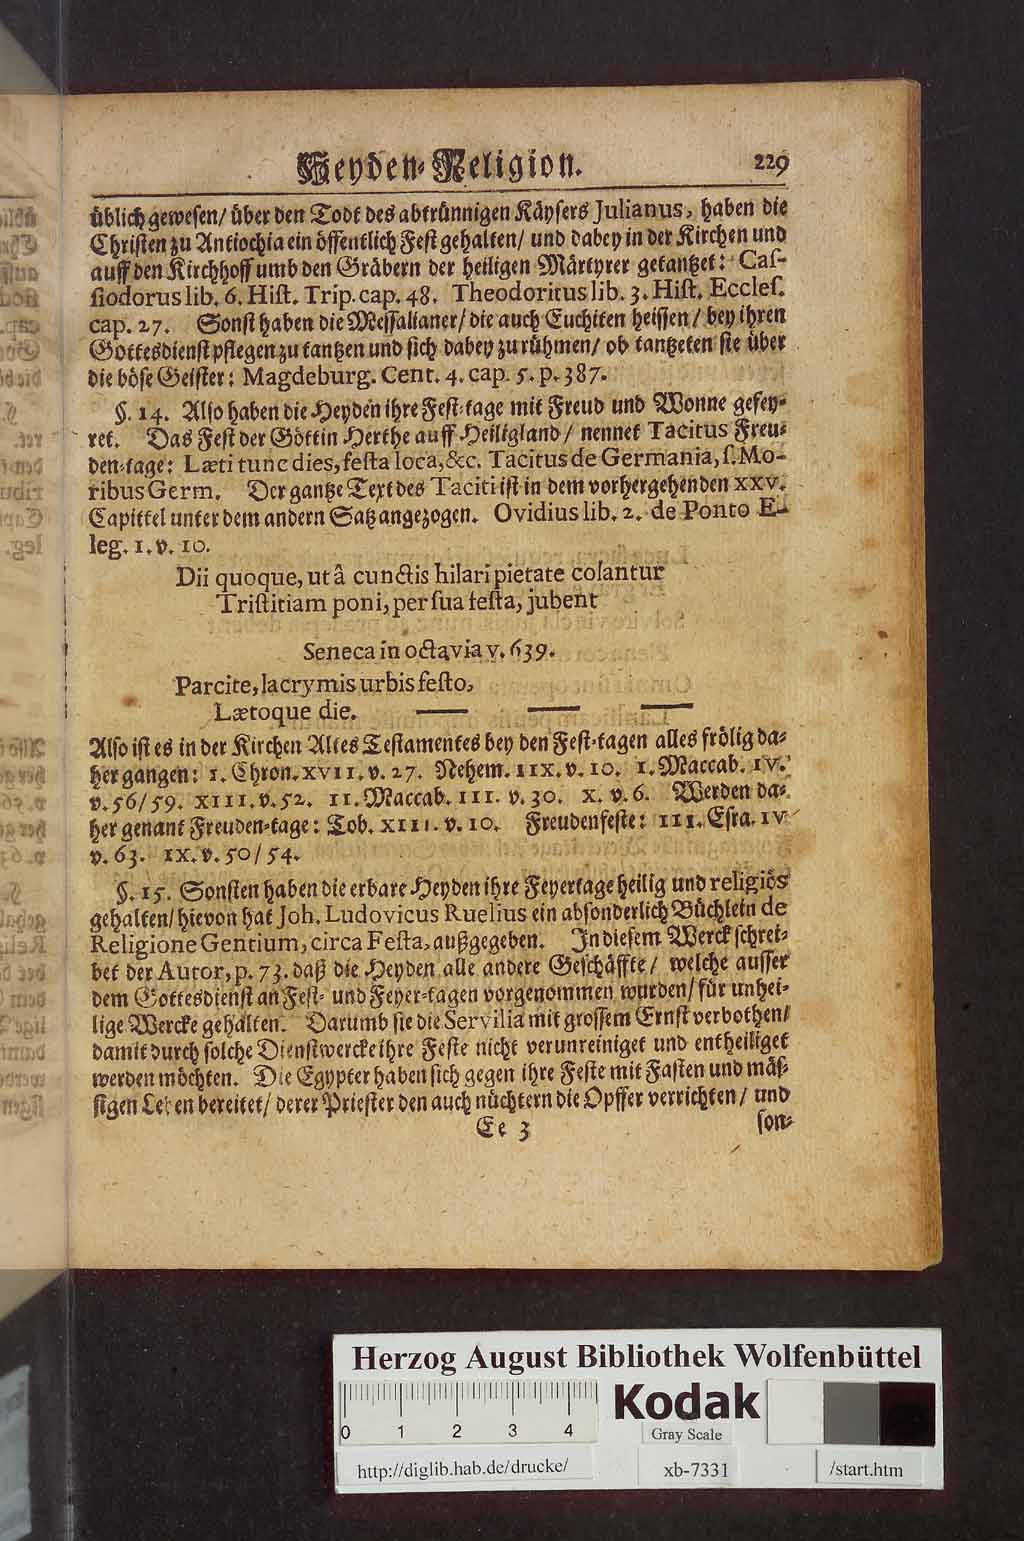 Heyden-Religion. 229
üblich gewesen/ über den Todt des abtrünnigen Käysers Julianus, haben die
Christen zu Antiochia ein öffentlich Fest gehalten/ und dabey in der Kirchen und
auff den Kirchhoff umb den Gräbern der heiligen Märtyrer getantzet: Cas-
siodorus lib. 6. Hist. Trip. cap. 48. Theodoritus lib. 3. Hist. Eccles.
cap. 27. Sonst haben die Messalianer/ die auch Euchiten heissen/ bey ihren
Gottesdienst pflegen zu tantzen und sich dabey zu rühmen/ ob tantzeten sie über
die böse Geister: Magdeburg. Cent. 4. cap. 5. p. 387.
§. 14. Also haben die Heyden ihre Fest-tage mit Freud und Wonne gefey-
ret. Das Fest der Göttin Herthe auff Heiligland/ nennet Tacitus Freu-
den-tage: Læti tunc dies, festa loca, &c. Tacitus de Germania, s. Mo-
ribus Germ. Der gantze Text des Taciti ist in dem vorhergehenden XXV.
Capittel unter dem andern Satz angezogen. Ovidius lib. 2. de Ponto E-
leg. 1. v. 10.
Dii quoque, ut â cunctis hilari pietate colantur
Tristitiam poni, per sua festa, jubent
Seneca in octavia v. 639.
Parcite, lacrymis urbis festo,
Lætoque die. — — —
Also ist es in der Kirchen Altes Testamentes bey den Fest-tagen alles frölig da-
her gangen: 1. Chron. XVII. v. 27. Nehem. IIX. v. 10. 1. Maccab. IV.
v. 56/ 59. XIII. v. 52. II. Maccab. III. v. 30. X. v. 6. Werden da-
her genant Freuden-tage: Tob. XIII. v. 10. Freudenfeste: III. Esra. IV
v. 63. IX. v. 50/ 54.
§. 15. Sonsten haben die erbare Heyden ihre Feyertage heilig und religiös
gehalten/ hievon hat Joh. Ludovicus Ruelius ein absonderlich Büchlein de
Religione Gentium, circa Festa, außgegeben. In diesem Werck schrei-
bet der Autor, p. 73. daß die Heyden alle andere Geschäffte/ welche ausser
dem Gottesdienst an Fest- und Feyer-tagen vorgenommen wurden/ für unhei-
lige Wercke gehalten. Darumb sie die Servilia mit grossem Ernst verbothen/
damit durch solche Dienstwercke ihre Feste nicht verunreiniget und entheiliget
werden möchten. Die Egypter haben sich gegen ihre Feste mit Fasten und mäs-
sigen Leben bereitet/ derer Priester den auch nüchtern die Opffer verrichten/ und
Ee 3 son-
Herzog August Bibliothek Wolfenbüttel
0 1 2 3 4
Kodak
Gray Scale
http://diglib.hab.de/drucke/ xb-7331 /start.htm